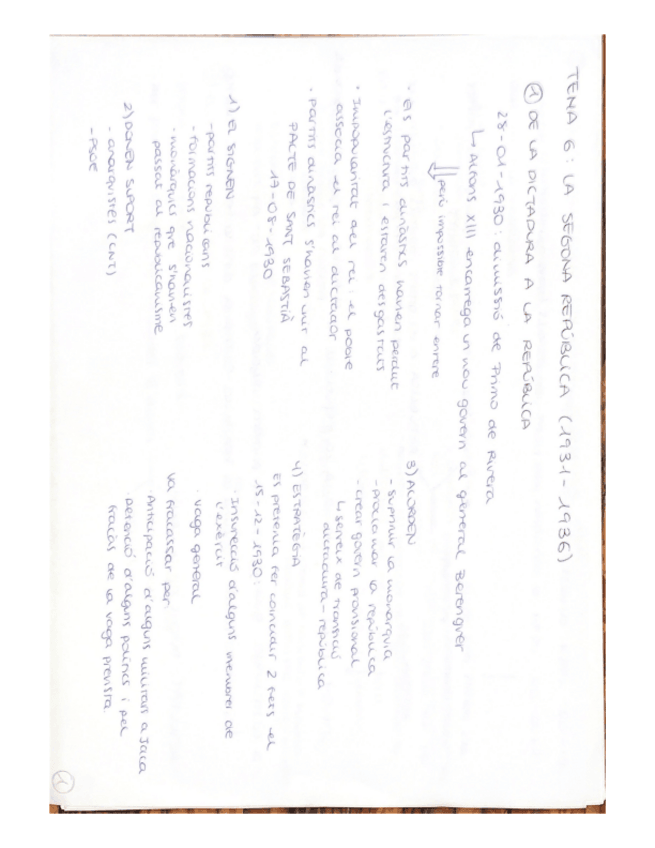 TEMA 6: LA SEGONA REPÚBLICA (1931-1936)
① DE LA DICTADURA A LA REPÚBLICA
28-01-1930: dimissió de Primo de Rivera
↳ Alfons XIII encarrega un nou govern al general Berenguer
⇓ però impossible tornar enrere
· els partits dinàstics havien perdut
l'estructura i estaven desgastats
· Impopularitat del rei: el poble
associa el rei al dictador
· Partits dinàstics s'havien unir al
PACTE DE SANT SEBASTIÀ
17-08-1930
1) EL SIGNEN
- partits republicans
- formacions nacionalistes
- monàrquics que s'havien
passat al republicanisme
2) DONEN SUPORT
- anarquistes (CNT)
- PSOE
3) ACORDEN
- suprimir la monarquia
- proclamar la república
- crear govern provisional
↳ serveix de transició
dictadura-república
4) ESTRATÈGIA
Es pretenia fer coincidir 2 fets el
15-12-1930:
· Insurrecció d'alguns membres de
l'exèrcit
· vaga general
Va fracassar per
· Anticipació d'alguns militars a Jaca
· Detenció d'alguns polítics i pel
fracàs de la vaga prevista.
1